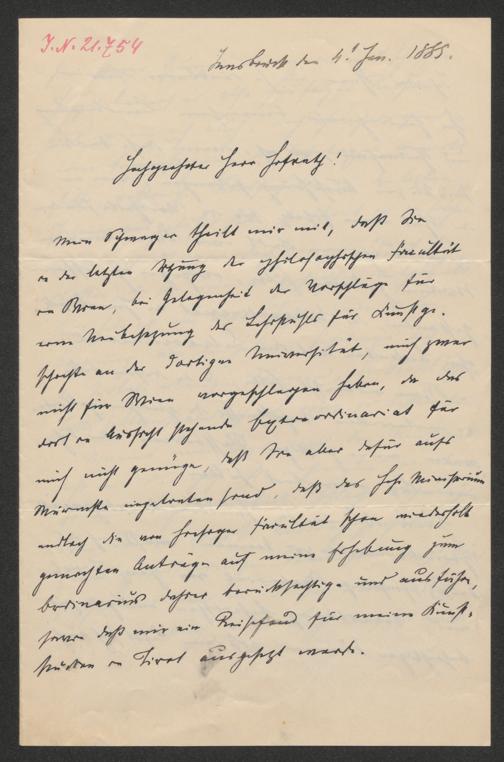 J.N. 21.754
Innsbruck den 4. Jan. 1885.
Hochgeehrter Herr Hofrath!
Mein Schwager theilt mir mit, daß Sie
in der letzten Sitzung der philosophischen Facultät
in Wien, bei Gelegenheit der Vorschläge für
eine Neubesetzung des Lehrstuhls für Kunstge-
schichte an der dortigen Universität, mich zwar
nicht für Wien vorgeschlagen haben, da das
dort in Aussicht stehende Extraordinariat für
mich nicht genüge, daß Sie aber dafür aufs
Wärmste eingetreten sind, daß das hohe Ministerium
endlich die von hiesiger Facultät schon wiederholt
gemachten Anträge auf meine Erhebung zum
Ordinarius daher berücksichtige und ausführe,
sowie daß mir ein Reisefond für meine Kunst-
studien in Tirol ausgesetzt werde.